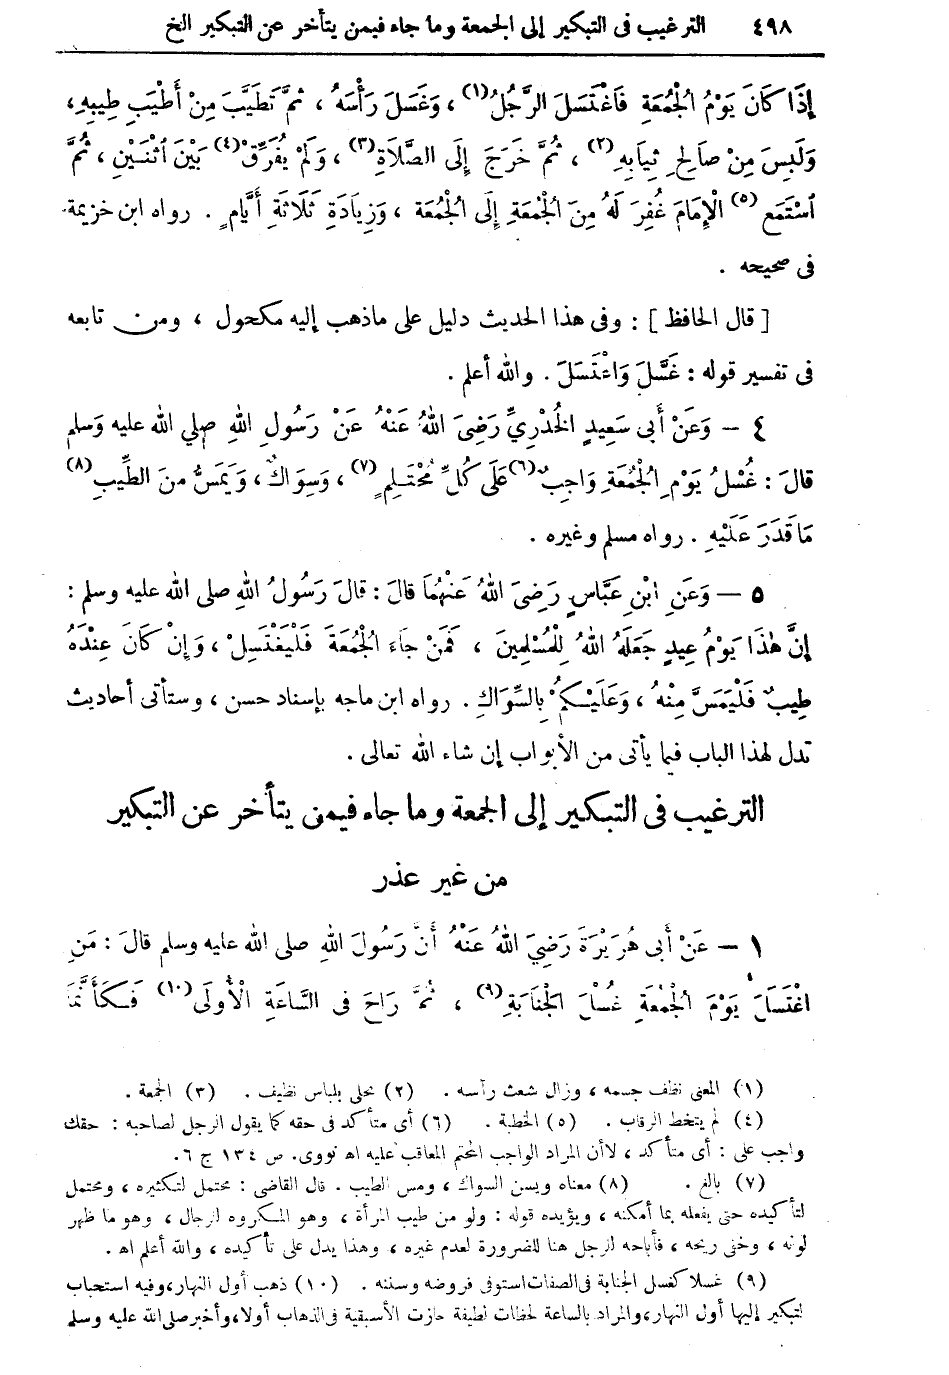 ٤٩٨ الترغيب فى التبكير إلى الجمعة وما جاء فيمن يتأخر عن التبكير الخ
إِذَا كَانَ يَوْمُ الْجُمُعَةِ فَاغْتَسَلَ الرَّجُلُ(١) ، وَغَسَلَ رَأْسَهُ ، ثُمَّ تَطَيَّبَ مِنْ أَطْيَبِ طِيبِهِ ،
وَلَبِسَ مِنْ صَالِحِ ثِيَابِهِ(٢) ، ثُمَّ خَرَجَ إِلَى الصَّلَاةِ(٣) ، وَلَمْ يُفَرِّقْ(٤) بَيْنَ اثْنَيْنِ ، ثُمَّ
اُسْتَمَع(٥) الْإِمَامَ غُفِرَ لَهُ مِنَ الْجُمُعَةِ إِلَى الْجُمُعَة ، وَزِيَادَةِ ثَلَاثَةِ أَيَّامٍ . رواه ابن خزيمة
فى صحيحه .
[ قال الحافظ ] : وفى هذا الحديث دليل على ماذهب إليه مكحول ، ومن تابعه
فى تفسير قوله : غَسَّلَ وَاغْتَسَلَ . والله أعلم .
٤ – وَعَنْ أَبِى سَعِيدٍ الْخُدْرِيِّ رَضِىَ اللهُ عَنْهُ عَنْ رَسُولِ اللهِ صلي الله عليه وَسلم
قالَ : غُسْلُ يَوْمِ الْجُمُعَةِ وَاجِبٌ(٦) عَلَى كُلِّ مُحْتَلِمٍ(٧) ، وَسِوَاكٌ ، وَيَمَسُّ منَ الطِّيبِ(٨)
مَا قَدَرَ عَلَيْهِ . رواه مسلم وغيره .
٥ – وَعَنِ ابْنِ عَبَّاسٍ رَضِىَ اللهُ عَنْهُمَا قالَ : قالَ رَسُولُ اللهِ صلى الله عليه وسلم :
إِنَّ هٰذَا يَوْمُ عِيدٍ جَعَلَهُ اللهُ لِلْمُسْلِمِينَ ، فَمَنْ جَاءَ الْجُمُعَةَ فَلْيَغْتَسِلْ ، وَإِنْ كَانَ عِنْدَهُ
طِيبٌ فَلْيَمَسَّ مِنْهُ ، وَعَلَيْكُمْ بِالسِّوَاكِ . رواه ابن ماجه بإسناد حسن ، وستأتى أحاديث
تدل لهذا الباب فيما يأتى من الأبواب إن شاء الله تعالى .
الترغيب فى التبكير إلى الجمعة وما جاء فيمن يتأخر عن التبكير
من غير عذر
١ – عَنْ أَبِى هُرَيْرَةَ رَضِيَ اللهُ عَنْهُ أَنَّ رَسُولَ اللهِ صلى الله عليه وسلم قالَ : مَنِ
اغْتَسَلَ يَوْمَ الْجُمُعَةِ غُسْلَ الْجَنَابَةِ(٩) ، ثُمَّ رَاحَ فى السَّاعَةِ الْأُولَى(١٠) فَكَأَنَّمَا
(١) المعنى نظف جسمه ، وزال شعث رأسه . (٢) تحلى بلباس نظيف . (٣) الجمعة .
(٤) لم يتخط الرقاب . (٥) الخطبة . (٦) أى متأكد فى حقه كما يقول الرجل لصاحبه : حقك
واجب على : أى متأكد ، لاأن المراد الواجب المحتم المعاقب عليه اه نووى. ص ١٣٤ ج ٦.
(٧) بالغ . (٨) معناه ويسن السواك ، ومس الطيب . قال القاضى : محتمل لتكثيره ، ومحتمل
لتأكيده حتى يفعله بما أمكنه ، ويؤيده قوله : ولو من طيب المرأة ، وهو المكروه لرجال ، وهو ما ظهر
لونه ، وخفى ريحه ، فأباحه لرجل هنا للضرورة لعدم غيره ، وهذا يدل على تأكيده ، والله أعلم اه .
(٩) غسلا كغسل الجنابة فى الصفات استوفى فروضه وسننه . (١٠) ذهب أول النهار، وفيه استحباب
لتبكير إليها أول النهار، والمراد بالساعة لحظات لطيفة حازت الأسبقية فى الذهاب أولا، وأخبر صلى الله عليه وسلم